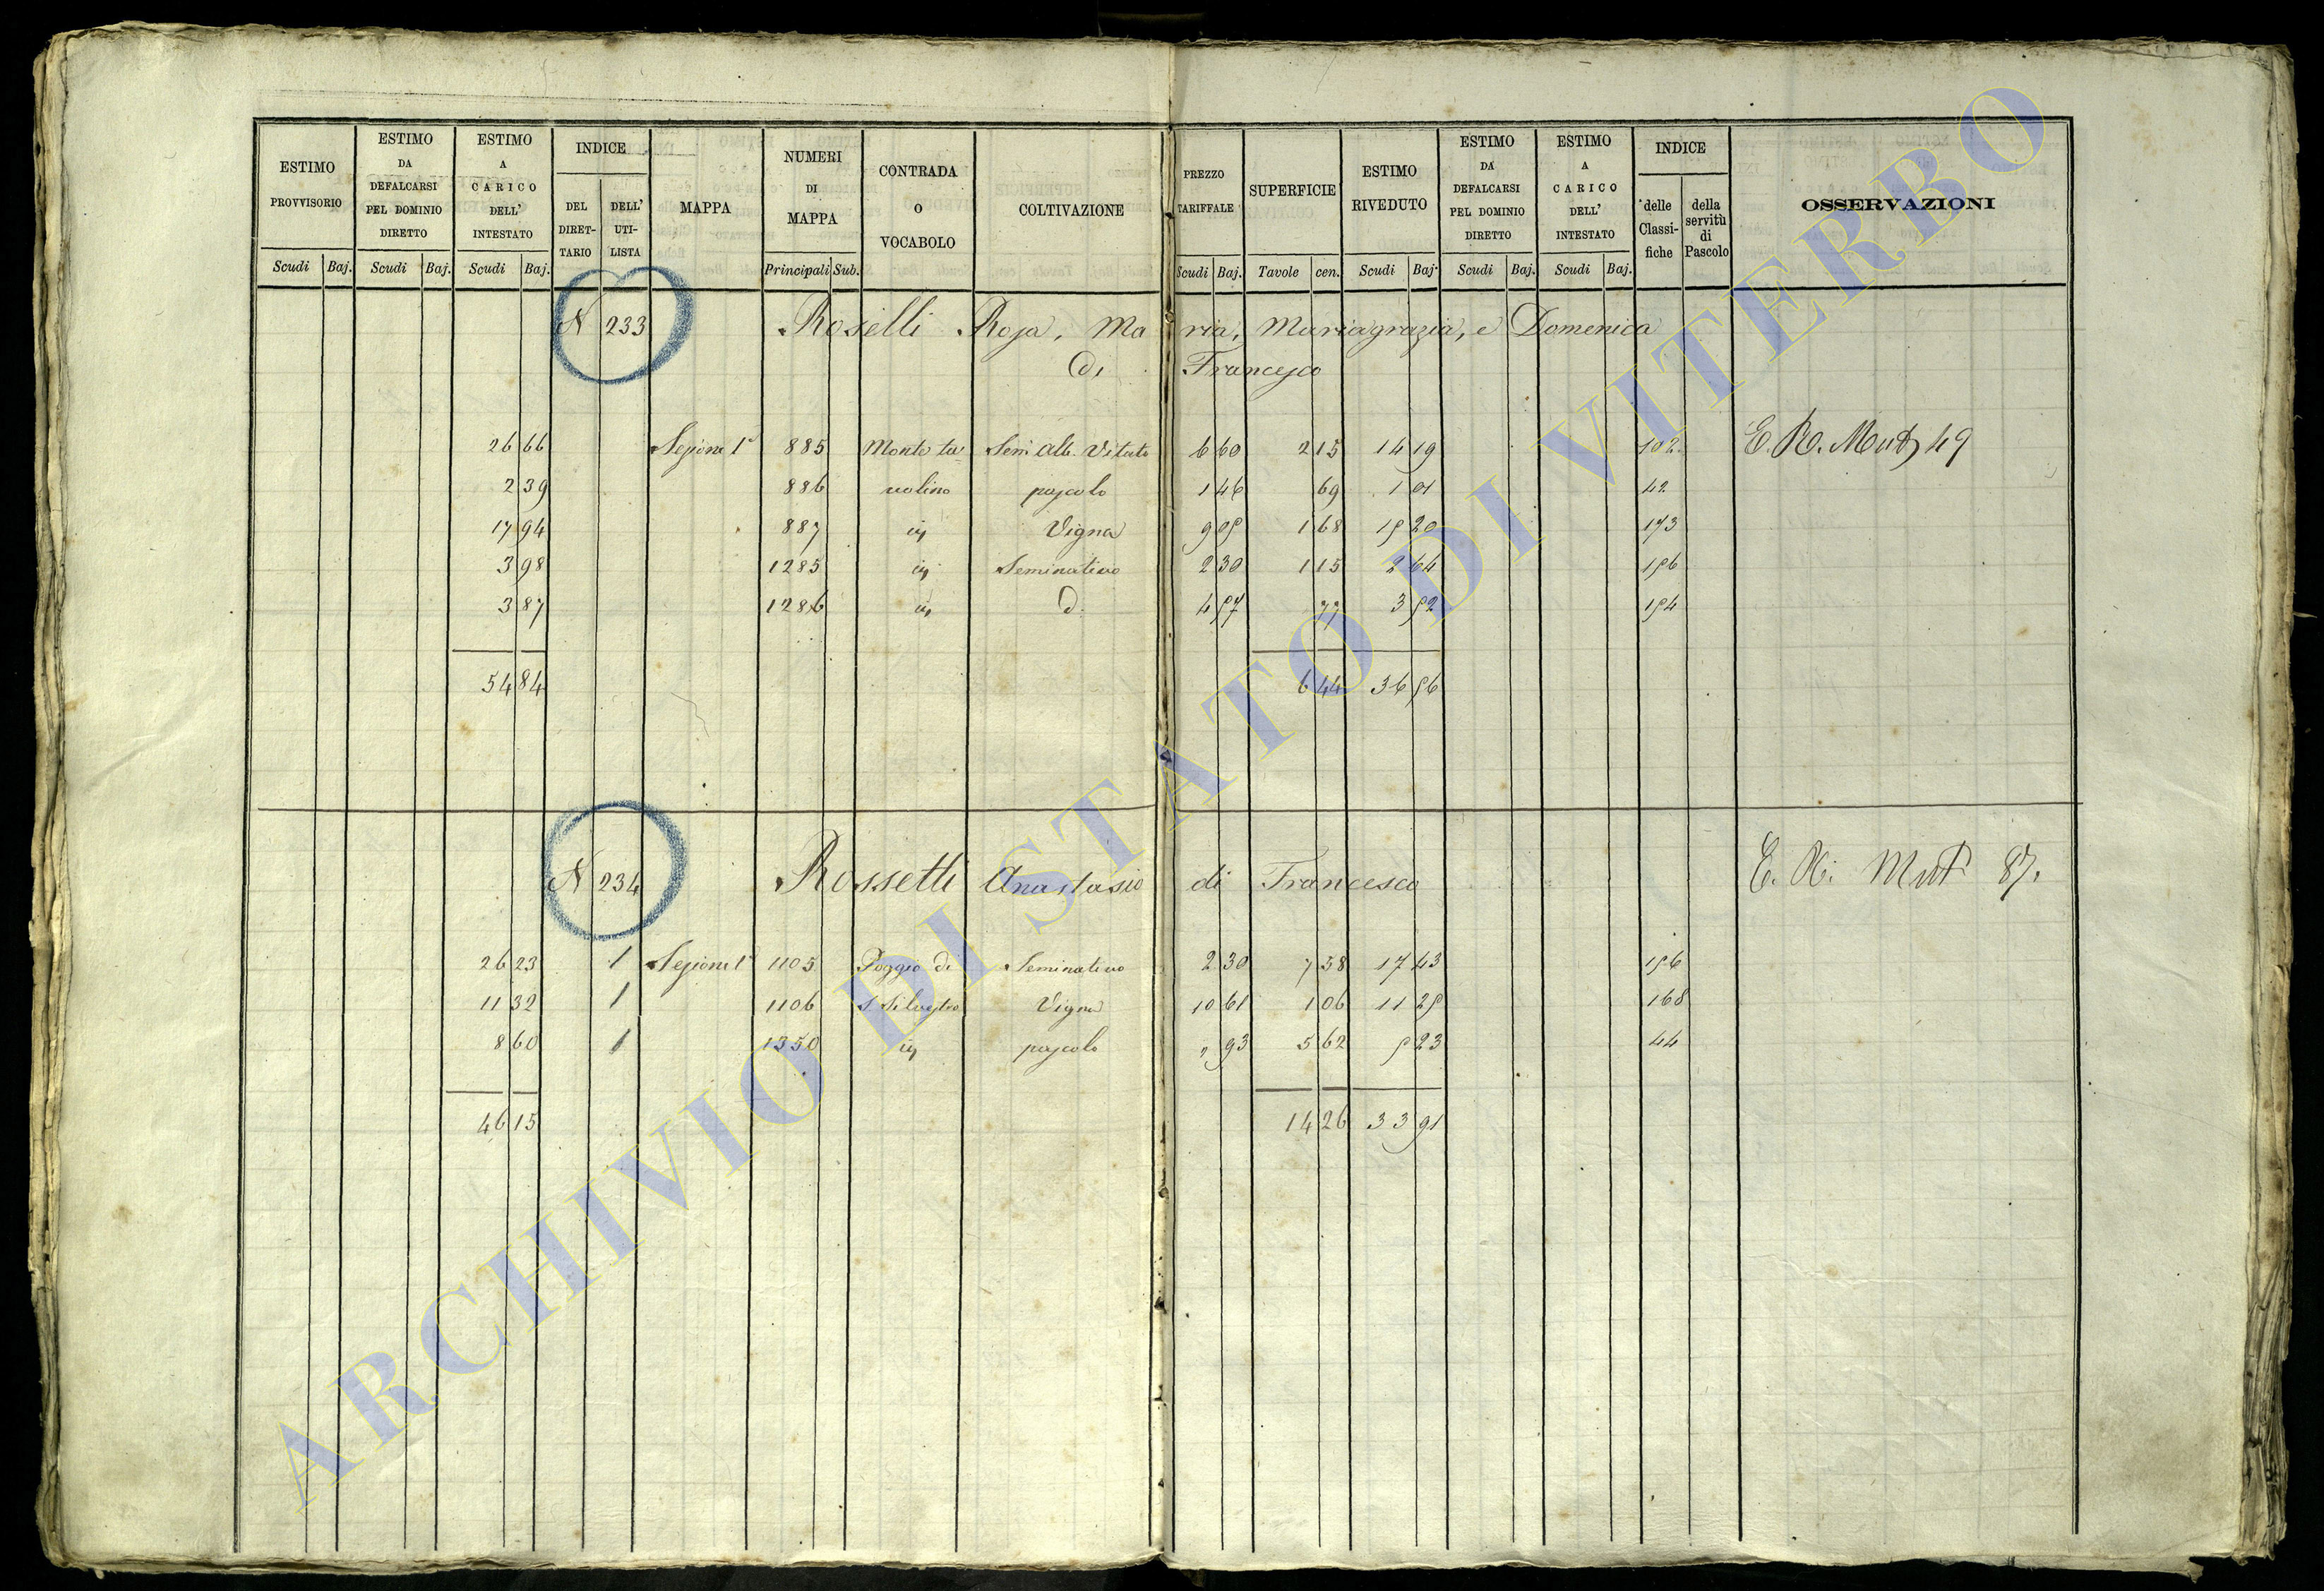 ESTIMO PROVVISORIO
ESTIMO DA DEFALCARSI PEL DOMINIO DIRETTO
ESTIMO A CARICO DELL' INTESTATO
INDICE
DEL DIRET-TARIO
DELL' UTI-LISTA
MAPPA
NUMERI DI MAPPA
CONTRADA O VOCABOLO
COLTIVAZIONE
PREZZO TARIFFALE
SUPERFICIE
ESTIMO RIVEDUTO
ESTIMO DA DEFALCARSI PEL DOMINIO DIRETTO
ESTIMO A CARICO DELL' INTESTATO
INDICE
delle Classi-fiche
della servitù di Pascolo
OSSERVAZIONI
Scudi Baj. Scudi Baj. Scudi Baj. Principali Sub. Scudi Baj. Tavole cen. Scudi Baj. Scudi Baj. Scudi Baj.
N 233 Roselli Rosa, Maria, Mariagrazia, e Domenica
di Francesco
26 66 Sezione 1a 885 Monte ta Sem Alb. Vitato 6 60 2 15 14 19 102
2 39 886 uolino pascolo 1 46 69 1 01 42
17 94 887 id Vigna 9 05 1 68 15 20 173
3 98 1285 id Seminativo 2 30 1 15 2 64 156
3 87 1286 id d. 4 57 77 3 52 154
54 84 6 44 36 56
E. R. Mut 49
N 234 Rossetti Anastasio di Francesco
E. R. Mut 87.
26 23 1 Sezione 1a 1105 Poggio di Seminativo 2 30 7 58 17 43 156
11 32 1 1106 S Silvestro Vigna 10 61 1 06 11 25 168
8 60 1 1350 id pascolo " 93 5 62 5 23 44
46 15 14 26 33 91
ARCHIVIO DI STATO DI VITERBO